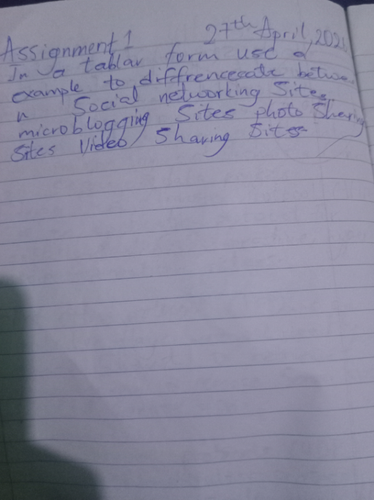 Assignment 1 27th April, 202
In a tablar form use a
example to diffrenceate betwe
n Social networking Sites,
microblogging Sites photo Sharing
Sites Video Sharing Sites.